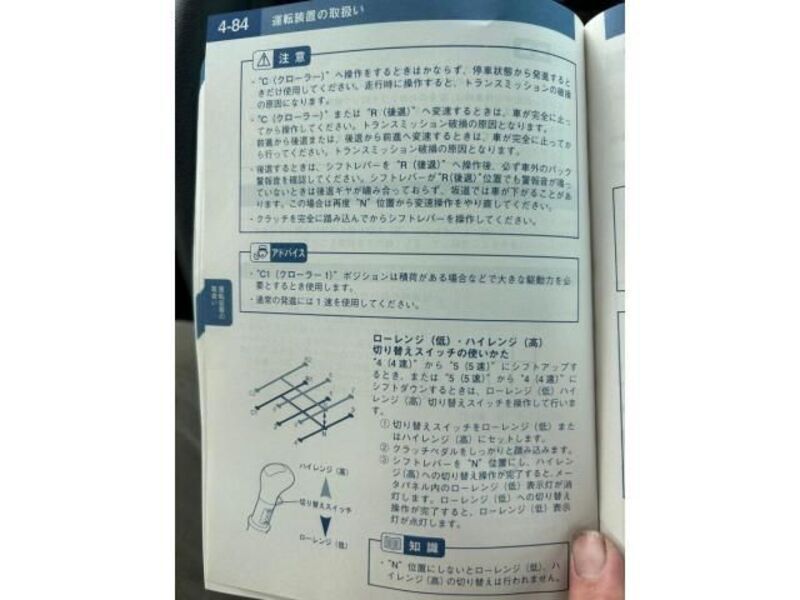 4-84 運転装置の取扱い
注意
・“C（クローラー）”へ操作をするときはかならず、停車状態から発進すると
きだけ使用してください。走行時に操作すると、トランスミッションの破損
の原因になります。
・“C（クローラー）”または“R（後退）”へ変速するときは、車が完全に止っ
てから操作してください。トランスミッション破損の原因となります。
前進から後退または、後退から前進へ変速するときは、車が完全に止ってか
ら行ってください。トランスミッション破損の原因となります。
・後退するときは、シフトレバーを“R（後退）”へ操作後、必ず車外のバック
警報音を確認してください。シフトレバーが“R（後退）”位置でも警報音が鳴っ
ていないときは後退ギヤが噛み合っておらず、坂道では車が下がることがあ
ります。この場合は再度“N”位置から変速操作をやり直してください。
・クラッチを完全に踏み込んでからシフトレバーを操作してください。
アドバイス
・“C1（クローラー1）”ポジションは積荷がある場合などで大きな駆動力を必
要とするとき使用します。
・通常の発進には1速を使用してください。
運転装置の
取扱い
ローレンジ（低）・ハイレンジ（高）
切り替えスイッチの使いかた
“4（4速）”から“5（5速）”にシフトアップ
するとき、または“5（5速）”から“4（4速）”に
シフトダウンするときは、ローレンジ（低）ハイ
レンジ（高）切り替えスイッチを操作して行いま
す。
① 切り替えスイッチをローレンジ（低）また
はハイレンジ（高）にセットします。
② クラッチペダルをしっかりと踏み込みます。
③ シフトレバーを“N”位置にし、ハイレン
ジ（高）への切り替え操作が完了すると、メー
タパネル内のローレンジ（低）表示灯が消
灯します。ローレンジ（低）への切り替え
操作が完了すると、ローレンジ（低）表示
灯が点灯します。
N
ハイレンジ（高）
切り替えスイッチ
ローレンジ（低）
知識
・“N”位置にしないとローレンジ（低）、ハ
イレンジ（高）の切り替えは行われません。